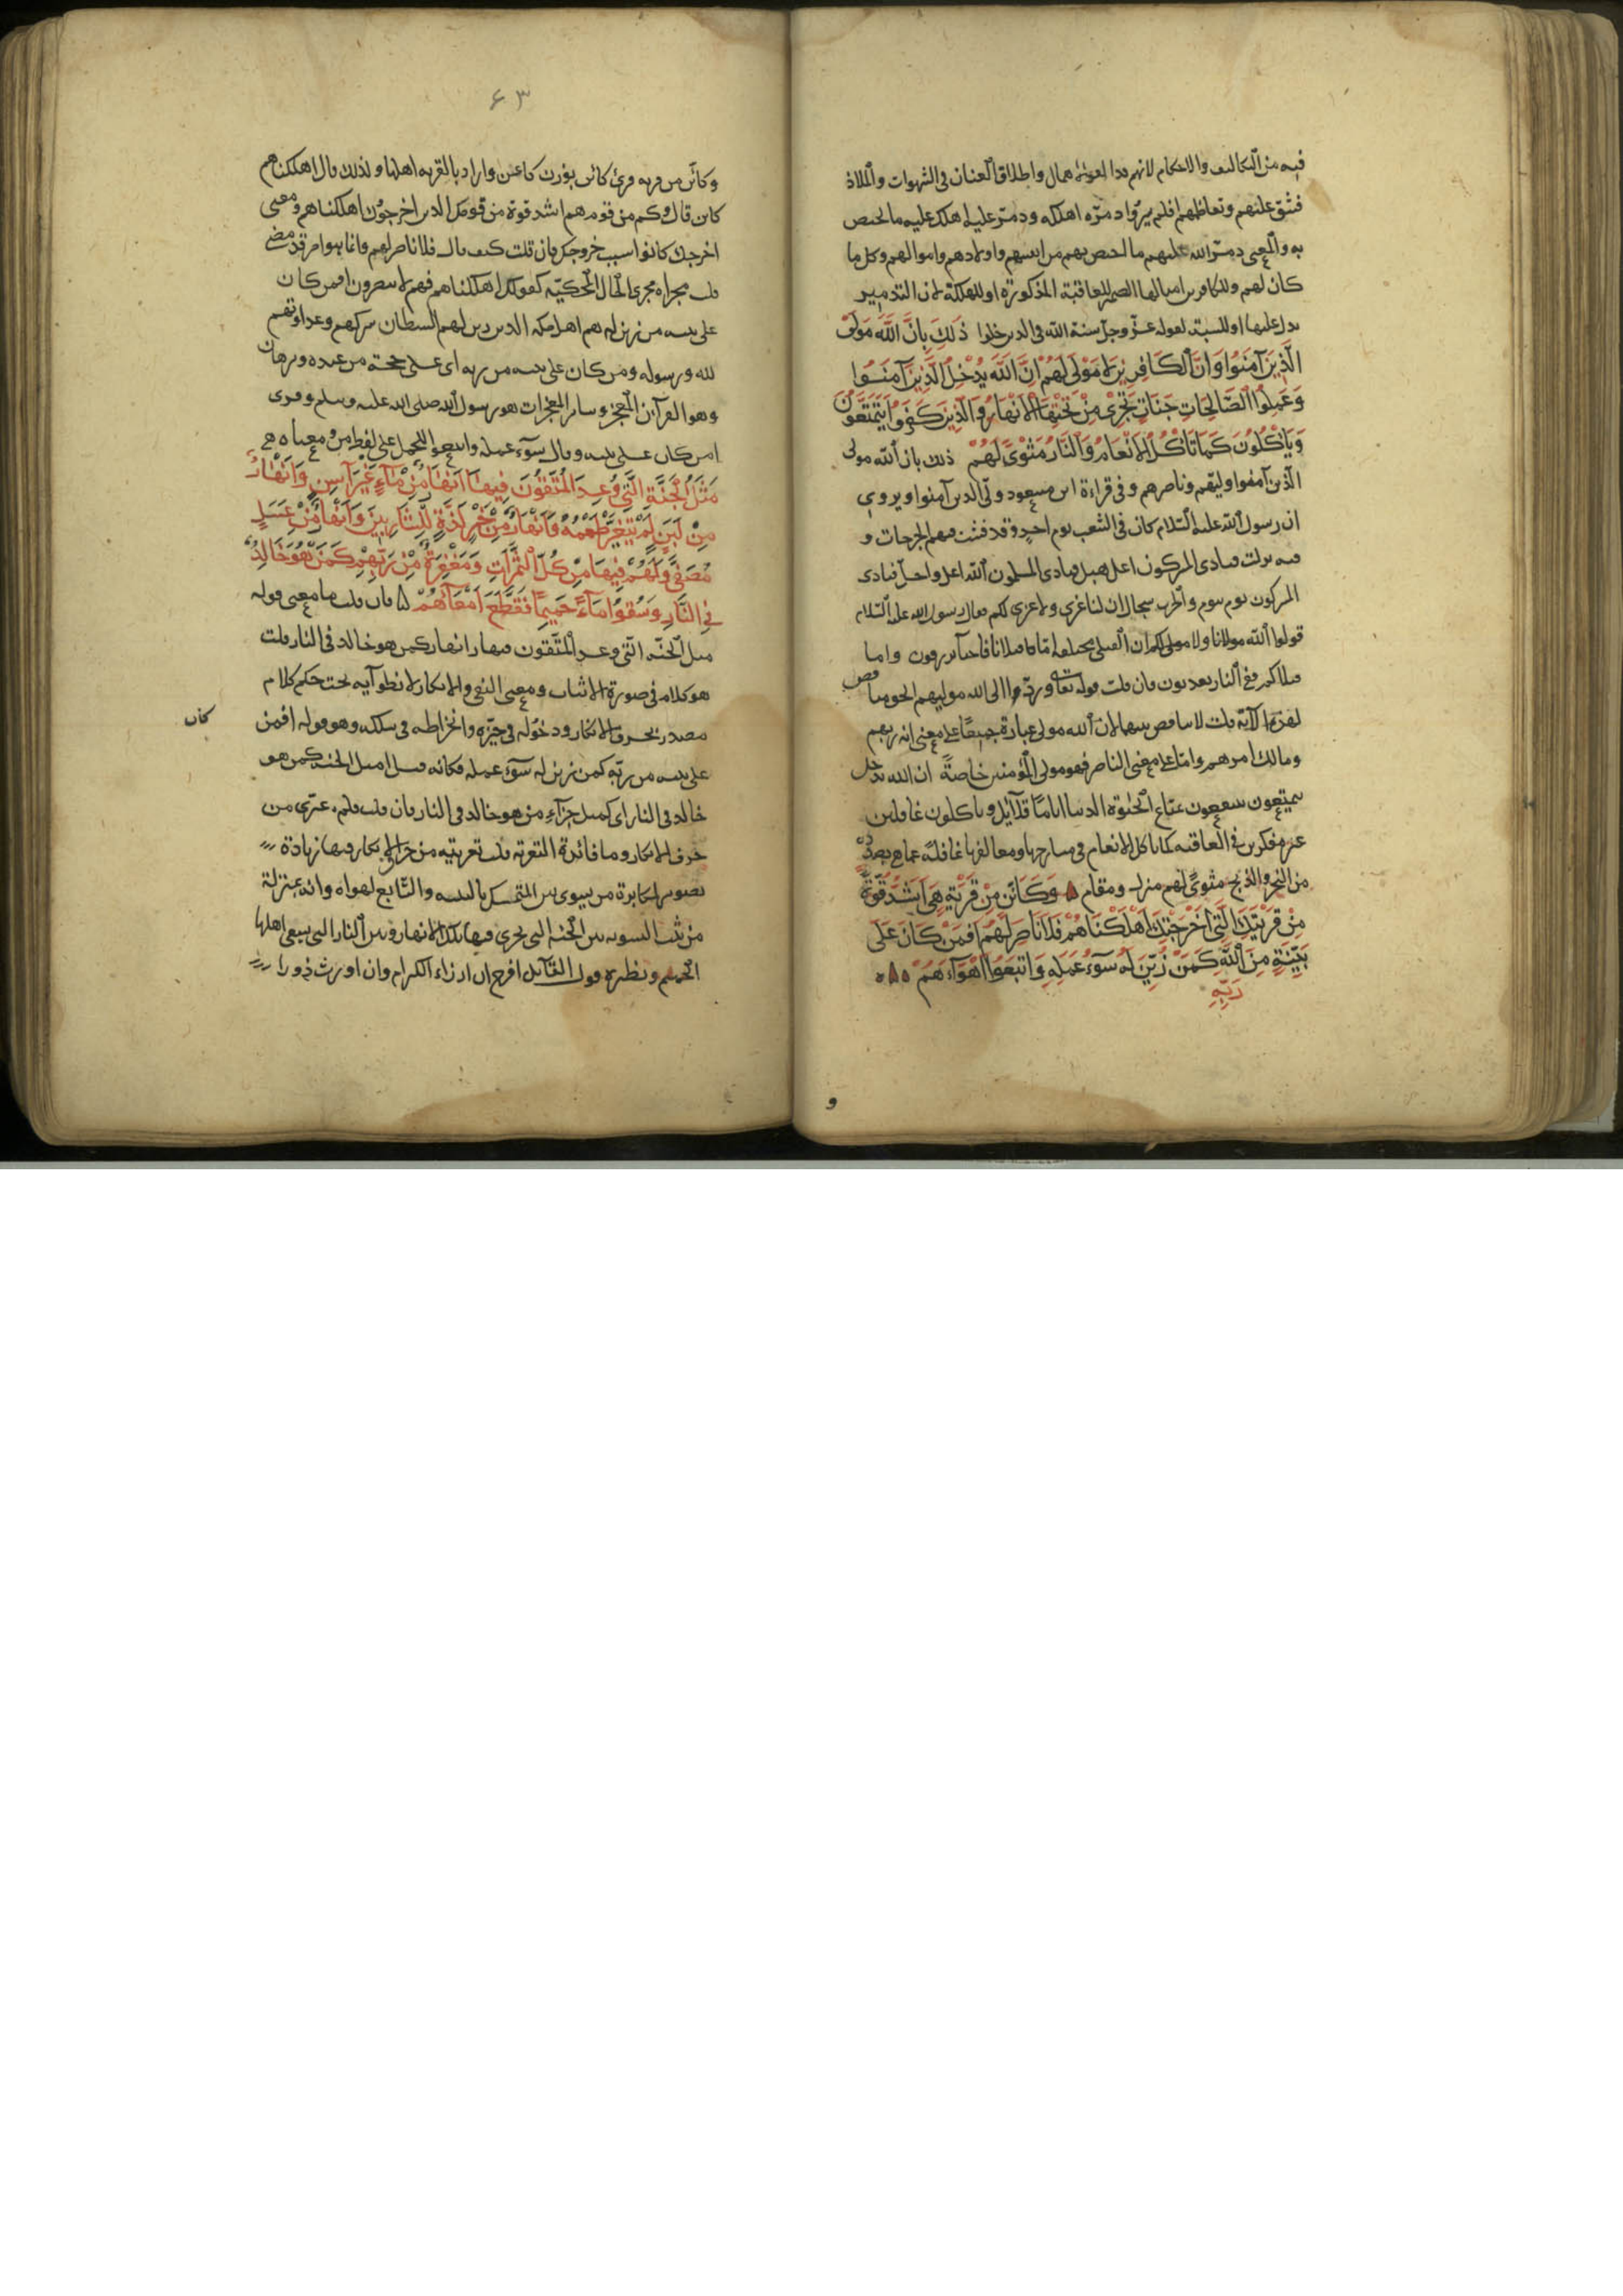 فيه من التكاليف والاحكام لانهم قد الفوا الاهمال واطلاق العنان فى الشهوات والملاذ
فشق عليهم وتعاظمهم افلم يسيروا دمّره اهلكه ودمّر عليه اهلك عليه ما يختص
به والمعنى دمّر الله عليهم ما اختص بهم من انفسهم واولادهم واموالهم وكل ما
كان لهم وللكافرين امثالها الضمير للعاقبة المذكورة او للهلكة لان التدمير
يدل عليها او للسنة لقوله عزّ وجلّ سنة الله فى الذين خلوا ذَلِكَ بِاَنَّ اللَّهَ مَوْلَى
الَّذِينَ آمَنُوا وَاَنَّ الْكَافِرِينَ لَا مَوْلَى لَهُمْ اِنَّ اللَّهَ يُدْخِلُ الَّذِينَ آمَنُوا
وَعَمِلُوا الصَّالِحَاتِ جَنَّاتٍ تَجْرِي مِنْ تَحْتِهَا الْاَنْهَارُ وَالَّذِينَ كَفَرُوا يَتَمَتَّعُونَ
وَيَاْكُلُونَ كَمَا تَاْكُلُ الْاَنْعَامُ وَالنَّارُ مَثْوًى لَهُمْ ذلك بان الله مولى
الذين آمنوا وليّهم وناصرهم وفى قراءة ابن مسعود ولّى الذين آمنوا ويروى
ان رسول الله عليه السّلام كان فى الشعب يوم احد وقد فشت فيهم الجرحات و
فيه نزلت فنادى المشركون اعل هبل فنادى المسلمون الله اعلى واجلّ فنادى
المشركون يوم بيوم والحرب سجال ان لنا عزى ولا عزى لكم فقال رسول الله عليه السّلام
قولوا الله مولانا ولا مولى لكم ان القتلى مختلفة امّا قتلانا فاحياء يرزقون واما
قتلاكم ففى النار يعذبون فان قلت قوله تعالى وردّوا الى الله موليهم الحق مناقض
لهذه الآية قلت لا تناقض بينهما لان الله مولى عباده جميعًا على معنى انه ربهم
ومالك امرهم وامّا على معنى الناصر فهو مولى المؤمنين خاصةً ان الله يدخل
يتمتعون ينتفعون بمتاع الحيوة الدنيا ايامًا قلايل وياكلون غافلين
غير مفكرين فى العاقبة كما تاكل الانعام فى مسارحها ومعالفها غافلة عما هى بصدده
من النحر والذبح مثوىً لهم منزل ومقام ۵ وَكَاَيِّنْ مِنْ قَرْيَةٍ هِيَ اَشَدُّ قُوَّةً
مِنْ قَرْيَتِكَ الَّتِي اَخْرَجَتْكَ اَهْلَكْنَاهُمْ فَلَا نَاصِرَ لَهُمْ اَفَمَنْ كَانَ عَلَى
بَيِّنَةٍ مِنَ اللَّهِ كَمَنْ زُيِّنَ لَهُ سُوۤءُ عَمَلِهِ وَاتَّبَعُوا اَهْوَآءَهُمْ ۵۵۵
رَبِّهِ
و
۶۳
وكاين من قرية وقرئ كائن بوزن كاعن واراد بالقرية اهلها ولذلك قال اهلكناهم
كانه قال وكم من قوم هم اشد قوة من قومك الذين اخرجوك اهلكناهم ومعنى
اخرجك كانوا سبب خروجك فان قلت كيف قال فلا ناصر لهم وانما هو امر قد مضى
قلت مجراه مجرى الحال المحكيّة كقولك اهلكناهم فهم لا ينصرون افمن كان
على بينة من زين له هم اهل مكة الذين زين لهم الشيطان شركهم وعداوتهم
لله ورسوله ومن كان على بينة من ربه اى على حجّة من عنده وبرهان
وهو القرآن المعجز وساير المعجزات هو رسول الله صلى الله عليه وسلم وقرئ
امن كان على بينة وقال سوء عمله واتبعوا للحمل على لفظ من ومعناه
مَثَلُ الْجَنَّةِ الَّتِي وُعِدَ الْمُتَّقُونَ فِيهَا اَنْهَارٌ مِنْ مَآءٍ غَيْرِ آسِنٍ وَاَنْهَارٌ
مِنْ لَبَنٍ لَمْ يَتَغَيَّرْ طَعْمُهُ وَاَنْهَارٌ مِنْ خَمْرٍ لَذَّةٍ لِلشَّارِبِينَ وَاَنْهَارٌ مِنْ عَسَلٍ
مُصَفًّى وَلَهُمْ فِيهَا مِنْ كُلِّ الثَّمَرَاتِ وَمَغْفِرَةٌ مِنْ رَبِّهِمْ كَمَنْ هُوَ خَالِدٌ
فِي النَّارِ وَسُقُوا مَآءً حَمِيمًا فَقَطَّعَ اَمْعَآءَهُمْ ۵ فان قلت ما معنى قوله
مثل الجنّة التى وعد المتّقون فيها انهار كمن هو خالد فى النار قلت
هو كلام فى صورة الاثبات ومعنى النفى والانكار لانطوآيه تحت حكم كلام
مصدر بحرف الانكار ودخوله فى حيّزه وانخراطه فى سلكه وهو قوله افمن
كان
على بينة من ربّه كمن زين له سوء عمله فكانه قيل امثل الجنة كمن هو
خالد فى النار اى كمثل جزآء من هو خالد فى النار فان قلت فلم عرّى من
حرف الانكار وما فائدة التعرية قلت تعريته من حرف الانكار فيها زيادة
تصوير لمكابرة من يسوى بين المتمسك بالبينة والتّابع لهواه وانه بمنزلة
من يثبت السوية بين الجنة التى تجرى فيها تلك الانهار وبين النار التى يسقى اهلها
الحميم ونظيره قول القآئل افرح ان ارزاء الكرام وان اورث ذودا